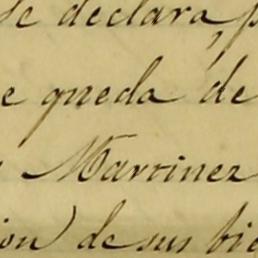 se declara, p
e queda de
Martinez
ion) de sus bie